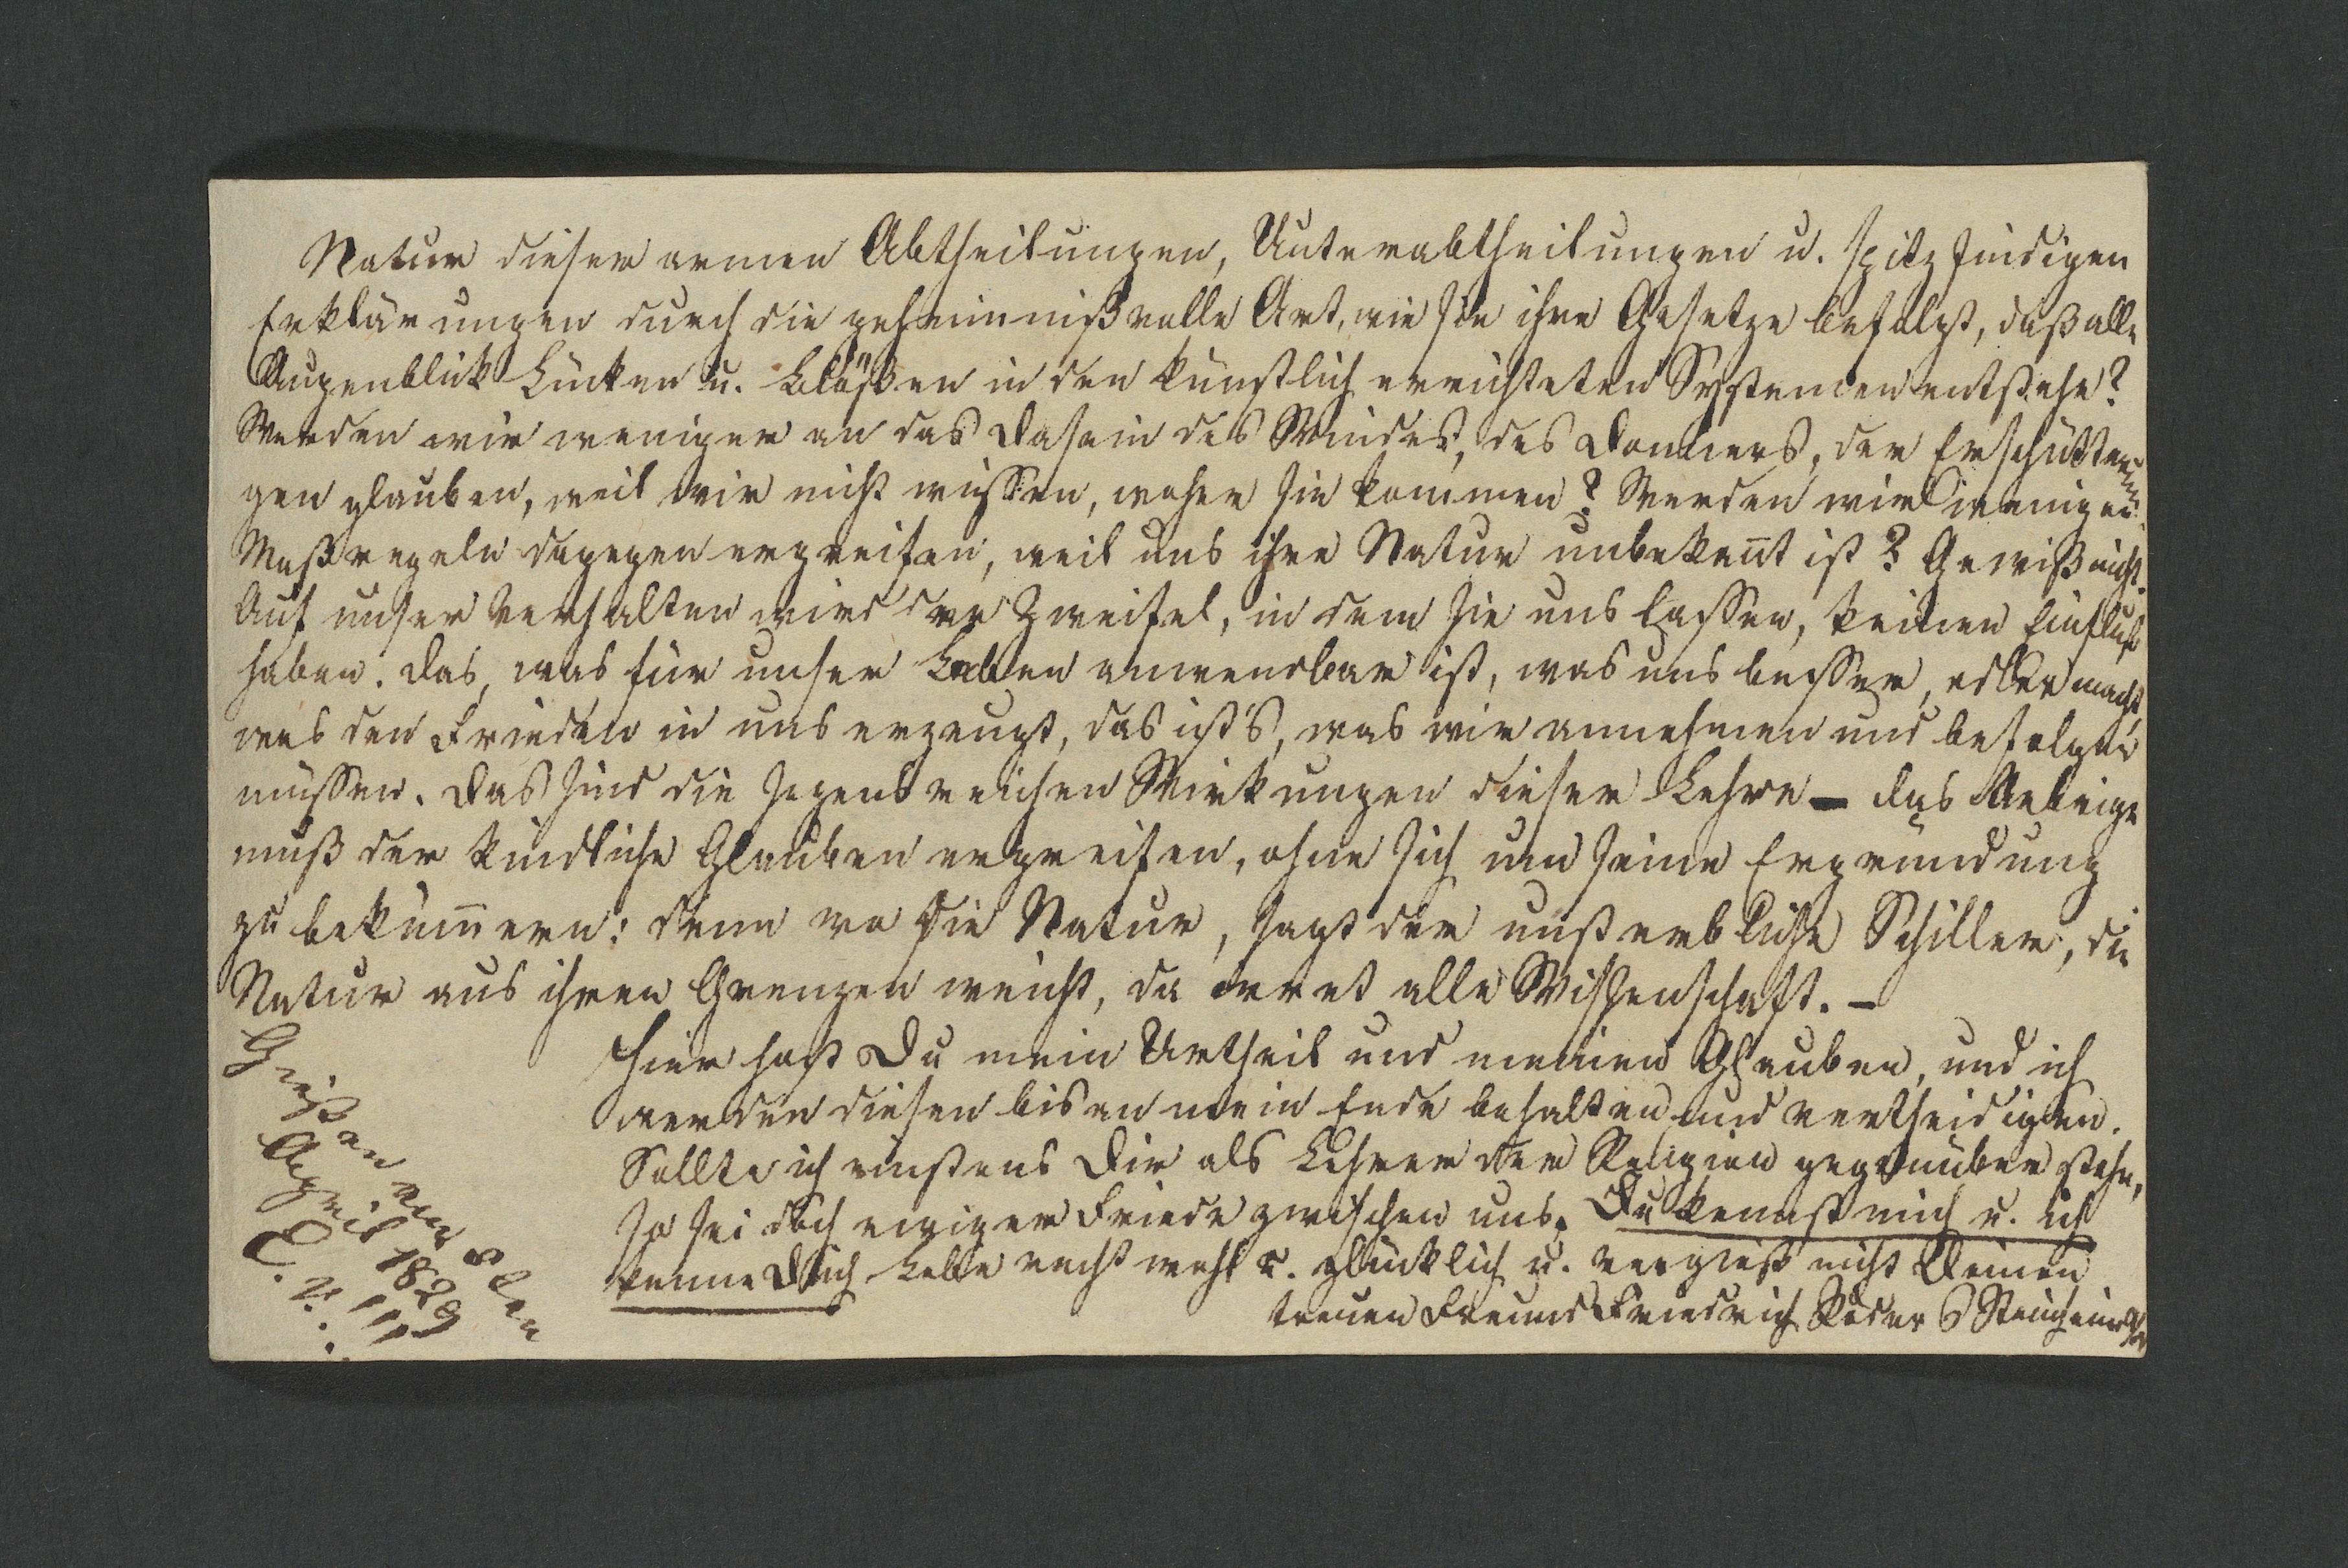 Natur dieser armen Abtheilungen, Unterabtheilungen u. spitzfindigen
Erklärungen durch die geheimnißvolle Art, wie sie ihre Gesetze befolgt, daß alle
Augenblick Lücken u. Blößen in den künstlich errichteten Systemen entstehn?
Werden wir weniger an das Dasein des Windes, des Donners, der Erschütterun-
gen glauben, weil wir nicht wissen, woher sie kommen? Werden wir weniger
Maßregeln dagegen ergreifen, weil uns ihre Natur unbekan̄t ist? Gewiß nicht.
Auf unser Verhalten wird der Zweifel, in dem sie uns lassen, keinen Einfluß
haben. Das, was für unser Leben anwendbar ist, was uns besser, edler macht,
was den Frieden in uns erzeugt, das ist's, was wir annehmen und befolgen
müssen. Das sind die segensreichen Wirkungen dieser Lehre – das Uebrige
muß der kindliche Glauben ergreifen, ohne sich um seine Ergründung
zu beküm̄ern: denn wo die Natur, sagt der unsterbliche Schiller, die
Natur aus ihren Grenzen weicht, da irret alle Wissenschaft. –
Hier hast Du mein Urtheil und meinen Glauben, und ich
werden diesen bis an mein Ende behalten und vertheidigen.
Sollte ich einstens Dir als Lehrer der Religion gegenüber stehn,
so sei doch ewiger Friede zwischen uns. Du kennst mich u. ich
kenne Dich Lebe recht wohl u. glücklich u. vergieß nicht Deinen
treuen Freund Friedrich
Gießen am 8ten
April 1829